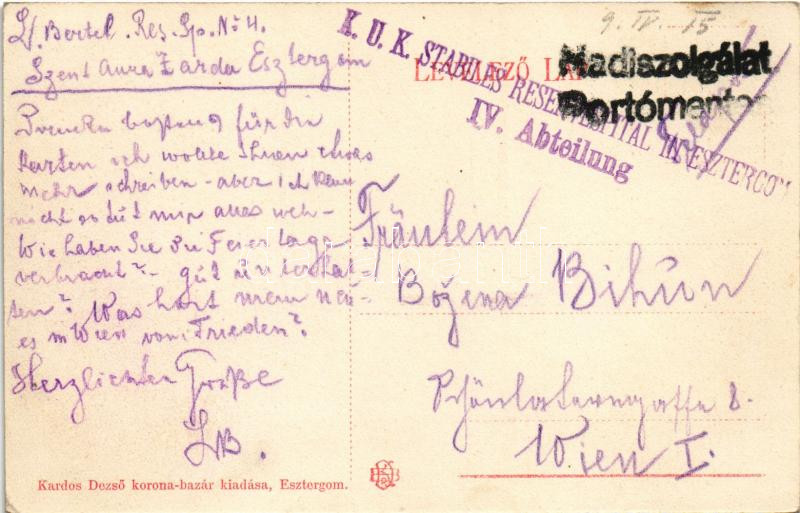 L. Bertel. Res. Sp. No 4.
Szent Anna Zarda Esztergom
besten für die
Karten ich wollte Ihnen etwas
mehr schreiben - aber ich kann
nicht es tut mir alles weh -
Wie haben Sie die Feiertage
verbracht? - gut unterhal
ten? Was hört man neu-
es in Wien vom Frieden?
Herzlichten Grüße
LB.
K. U. K. STABILES RESERVESPITAL IN ESZTERGOM
IV. Abteilung
LEVELEZŐ LAP
9. IV. 15
Hadiszolgálat
Portómentes
Fräulein
Božena Bihun
Schönlaterngasse 8.
Wien I.
Kardos Dezső korona-bazár kiadása, Esztergom.